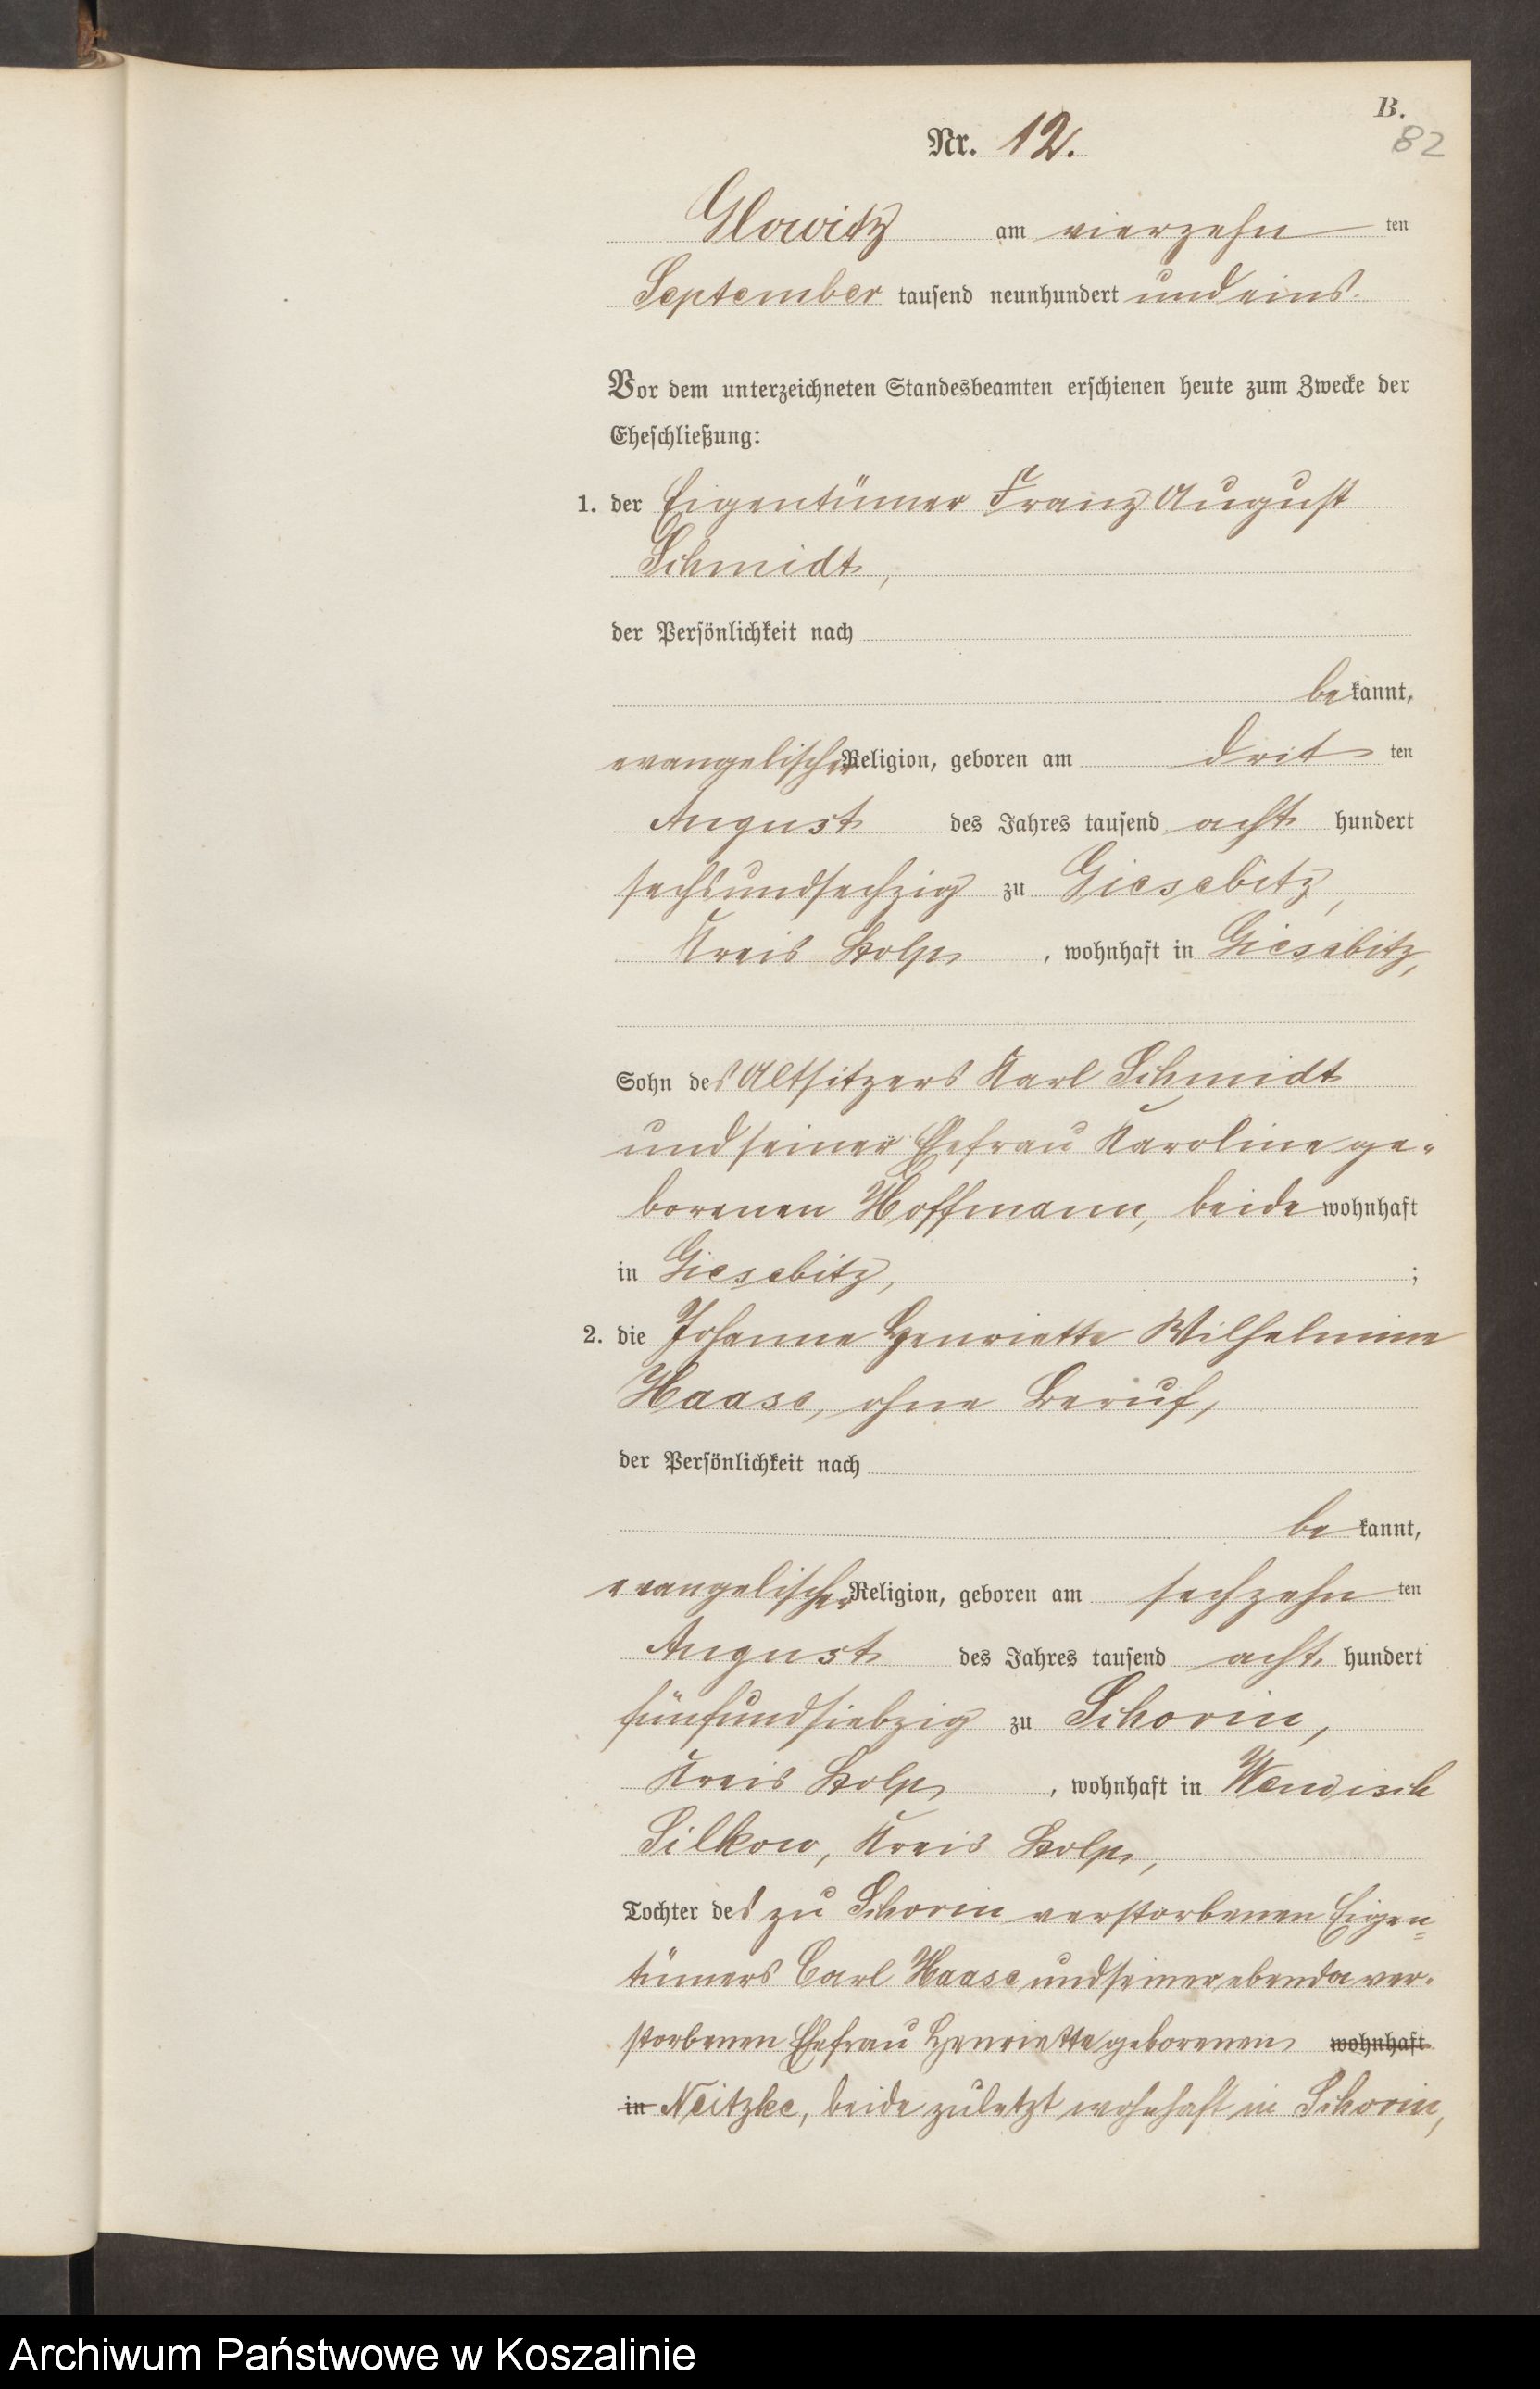 B.
82
Nr. 12.
Glowitz am vierzehn ten
September tausend neunhundert und eins.
Vor dem unterzeichneten Standesbeamten erschienen heute zum Zwecke der
Eheschließung:
1. der Eigentümer Franz August
Schmidt,
der Persönlichkeit nach
be kannt,
evangelischer Religion, geboren am drit ten
August des Jahres tausend acht hundert
sechsundsechzig zu Giesebitz,
Kreis Stolp, wohnhaft in Giesebitz,
Sohn des Altsitzers Karl Schmidt
und seiner Ehefrau Karoline ge-
borenen Hoffmann, beide wohnhaft
in Giesebitz, ;
2. die Johanne Henriette Wilhelmine
Haase, ohne Beruf,
der Persönlichkeit nach
be kannt,
evangelischer Religion, geboren am sechzehn ten
August des Jahres tausend acht hundert
fünfundsiebzig zu Schorin,
Kreis Stolp, wohnhaft in Wendisch
Silkow, Kreis Stolp,
Tochter des zu Schorin verstorbenen Eigen-
tümers Carl Haase und seiner ebenda ver-
storbenen Ehefrau Henriette geborenen wohnhaft
in Neitzke, beide zuletzt wohnhaft in Schorin,
Archiwum Państwowe w Koszalinie